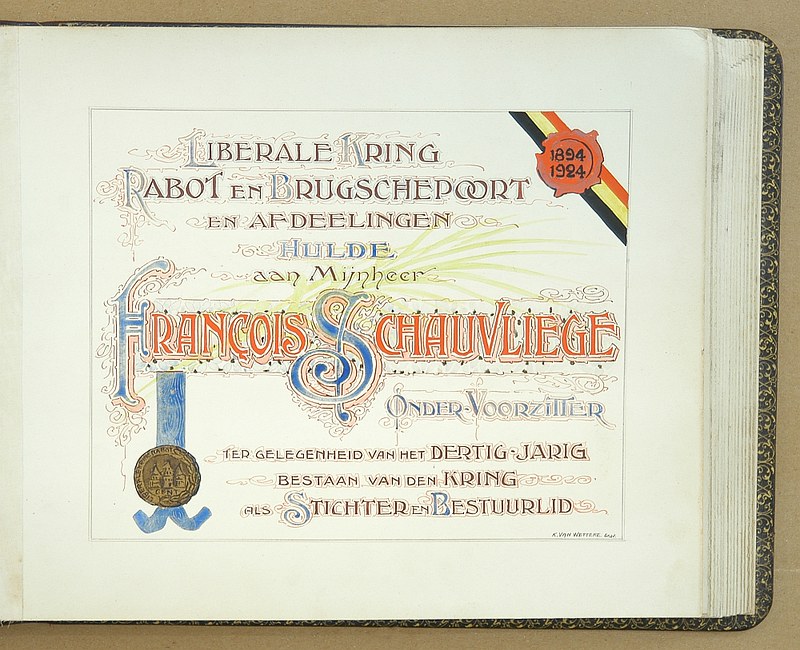 LIBERALE KRING
RABOT EN BRUGSCHEPOORT
EN AFDEELINGEN
HULDE
aan Mijnheer
FRANÇOIS SCHAUVLIEGE
ONDER-VOORZITTER
TER GELEGENHEID VAN HET DERTIG-JARIG
BESTAAN VAN DEN KRING
ALS STICHTER EN BESTUURLID
1894
1924
RABOT
GENT